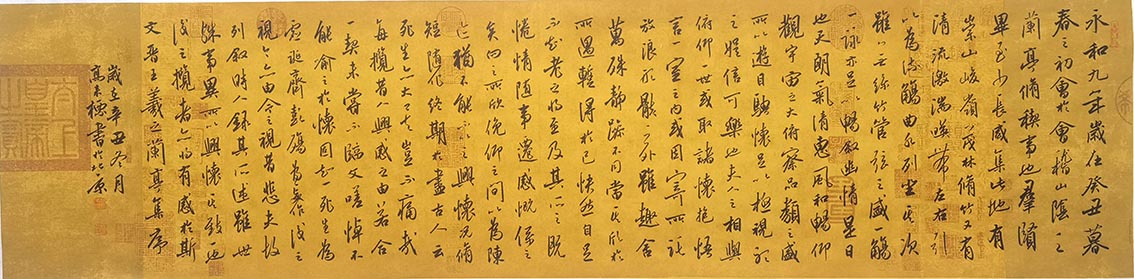 永和九年歲在癸丑暮
春之初會於會稽山陰之
蘭亭脩禊事也羣賢
畢至少長咸集此地有
崇山峻嶺茂林脩竹又有
清流激湍暎帶左右引
以為流觴曲水列坐其次
雖無絲竹管弦之盛一觴
一詠亦足以暢敘幽情是日
也天朗氣清惠風和暢仰
觀宇宙之大俯察品類之盛
所以遊目騁懷足以極視聽
之娛信可樂也夫人之相與
俯仰一世或取諸懷抱悟
言一室之內或因寄所託
放浪形骸之外雖趣舍
萬殊靜躁不同當其欣於
所遇輒得於己快然自足
不知老之將至及其所之既
惓情隨事遷感慨係之
矣向之所欣俛仰之間以為陳
迹猶不能不以之興懷況脩
短隨化終期於盡古人云
死生亦大矣豈不痛哉
每攬昔人興感之由若合
一契未嘗不臨文嗟悼不
能喻之於懷固知一死生為
虛誕齊彭殤為妄作後之
視今亦由今之視昔悲夫故
列敘時人錄其所述雖世
殊事異所以興懷其致一也
後之攬者亦將有感於斯
文晉王羲之蘭亭集序
歲在辛丑冬月
書於北京